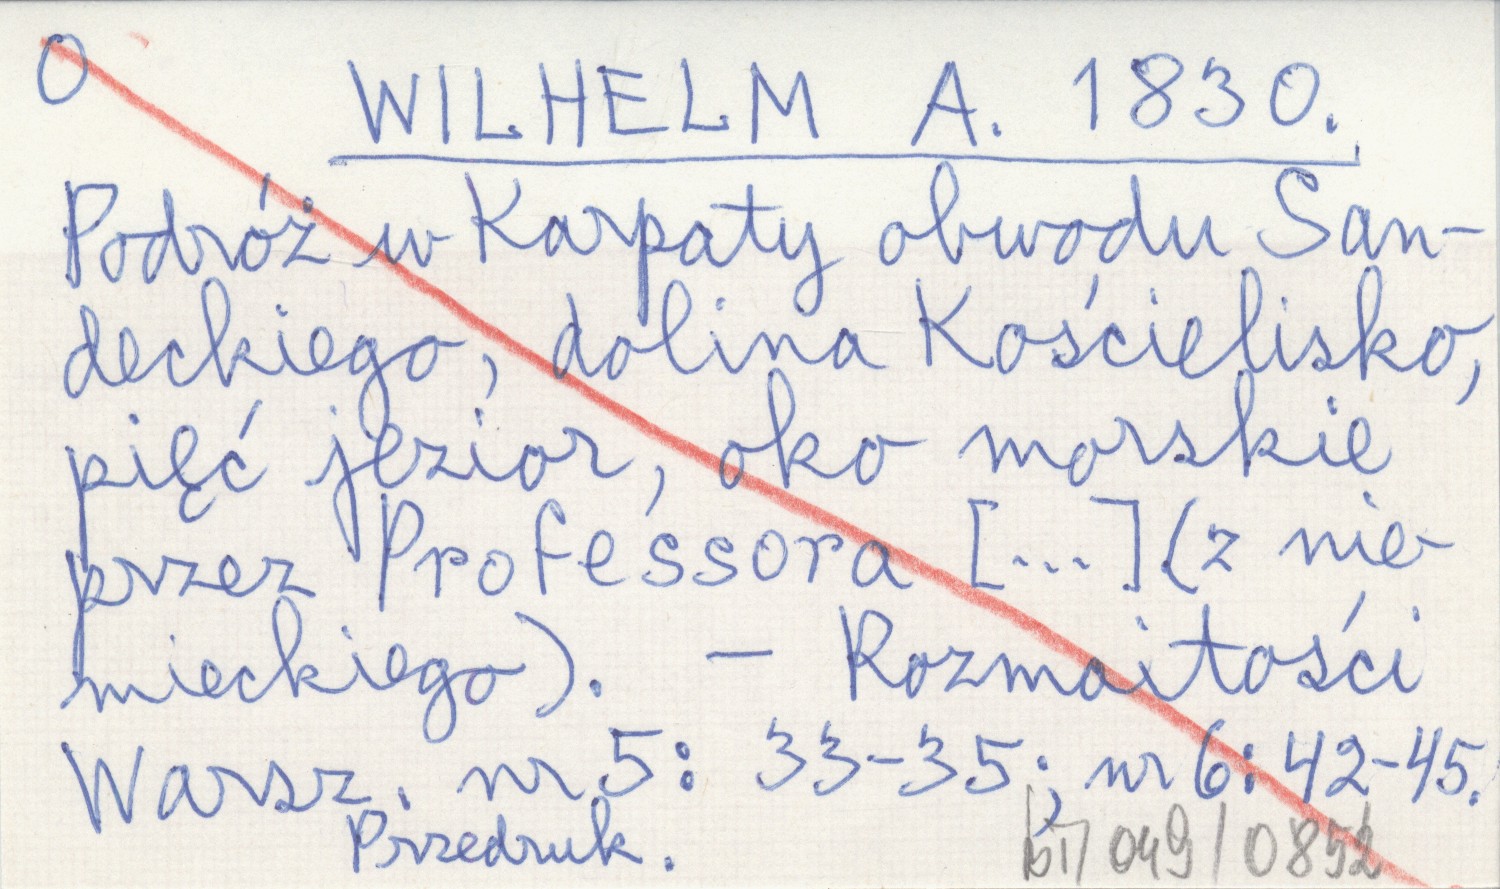 O
WILHELM A. 1830.
Podróż w Karpaty obwodu San-
deckiego, dolina Kościelisko,
pięć jezior, oko morskie
przez Professora [...] (z nie-
mieckiego). — Rozmaitości
Warsz. nr 5: 33-35; nr 6: 42-45.
Przedruk.
049/0852